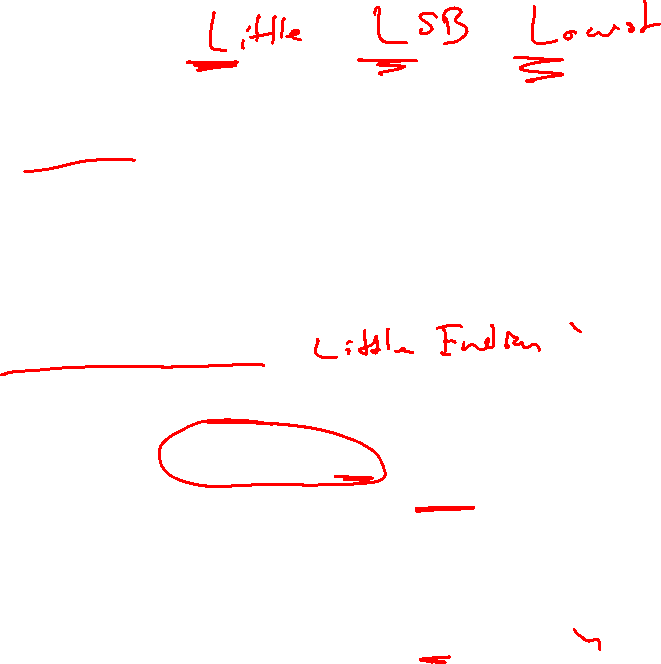 Little LSB Lowest
Little Endian